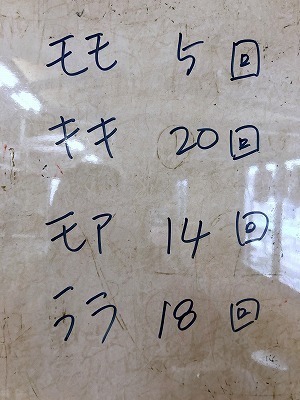 モモ 5回
キキ 20回
モア 14回
ララ 18回